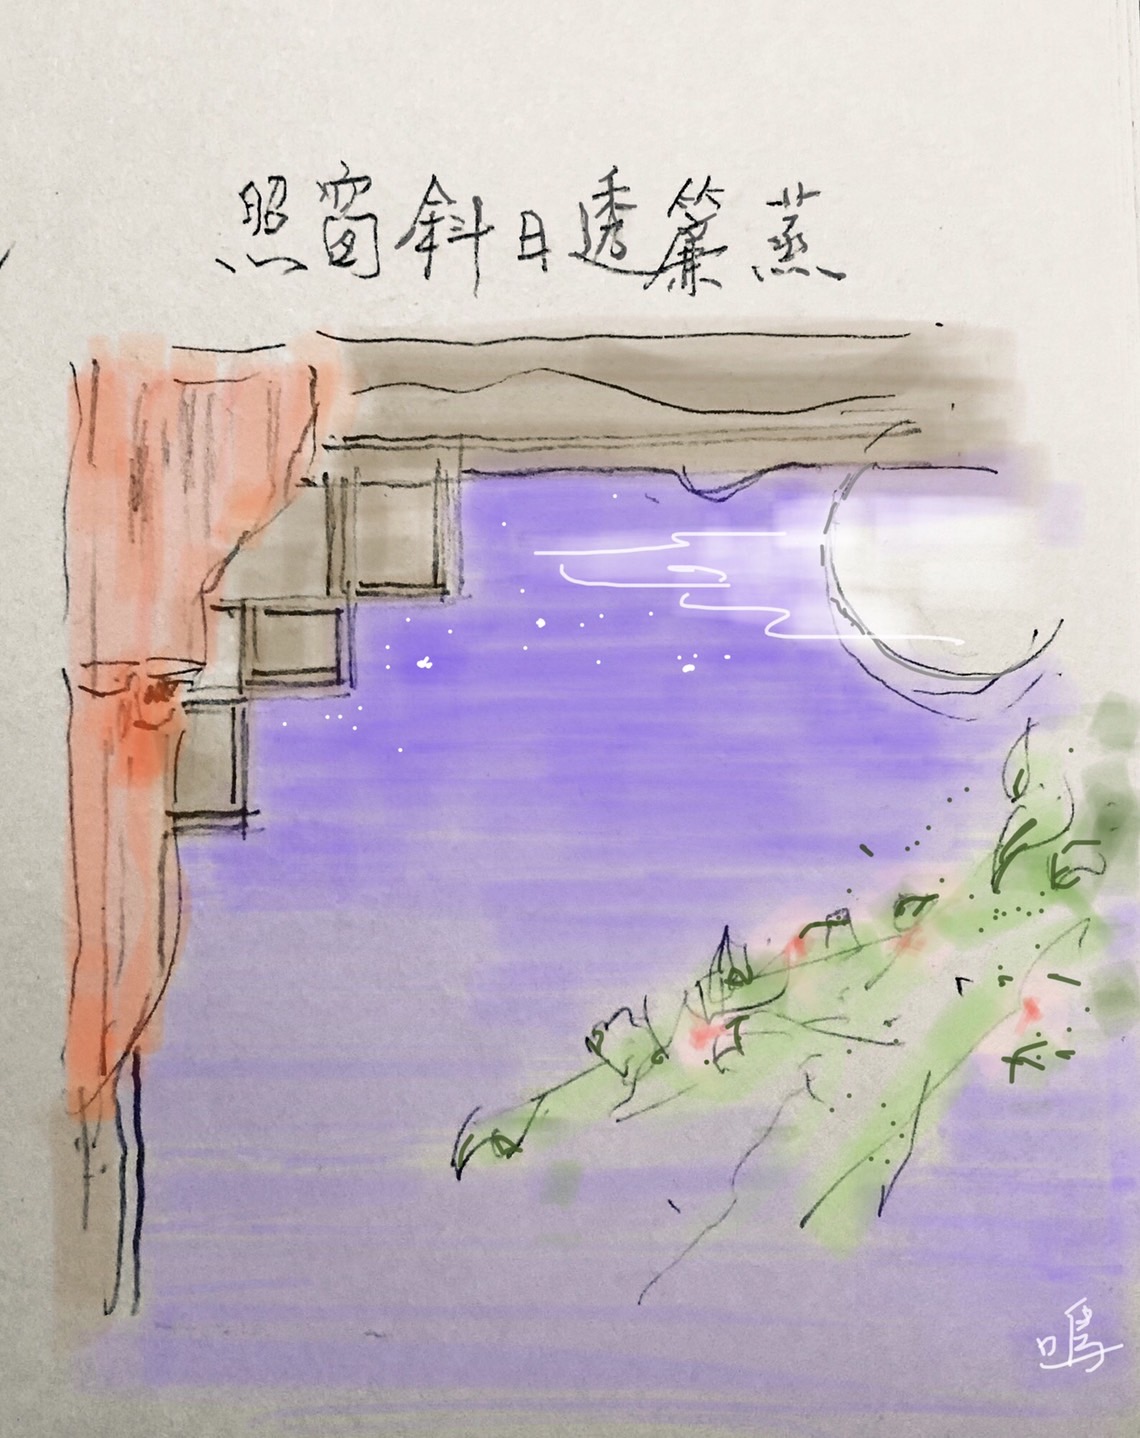 照窗斜日透簾蒸
鳴